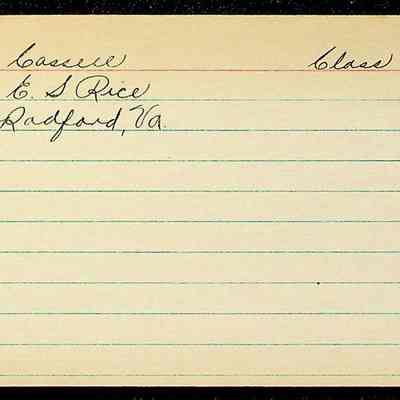 Cassell Class
E. S Rice
Radford, Va.